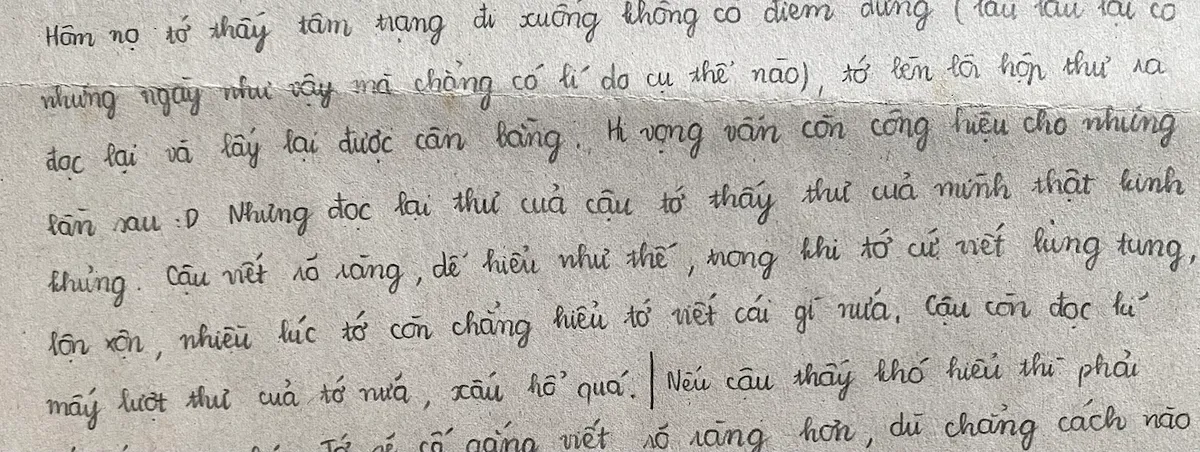 Hôm nọ tớ thấy tâm trạng đi xuống không có điểm dừng (lâu lâu lại có
những ngày như vậy mà chẳng có lí do cụ thể nào), tớ bèn lôi hộp thư ra
đọc lại và lấy lại được cân bằng. Hi vọng vẫn còn công hiệu cho những
lần sau :D Nhưng đọc lại thư của cậu tớ thấy thư của mình thật kinh
khủng. Cậu viết rõ ràng, dễ hiểu như thế, trong khi tớ cứ viết lùng tung,
lộn xộn, nhiều lúc tớ còn chẳng hiểu tớ viết cái gì nữa. Cậu còn đọc kĩ
mấy lượt thư của tớ nữa, xấu hổ quá. | Nếu cậu thấy khó hiểu thì phải
Tớ sẽ cố gắng viết rõ ràng hơn, dù chẳng cách nào